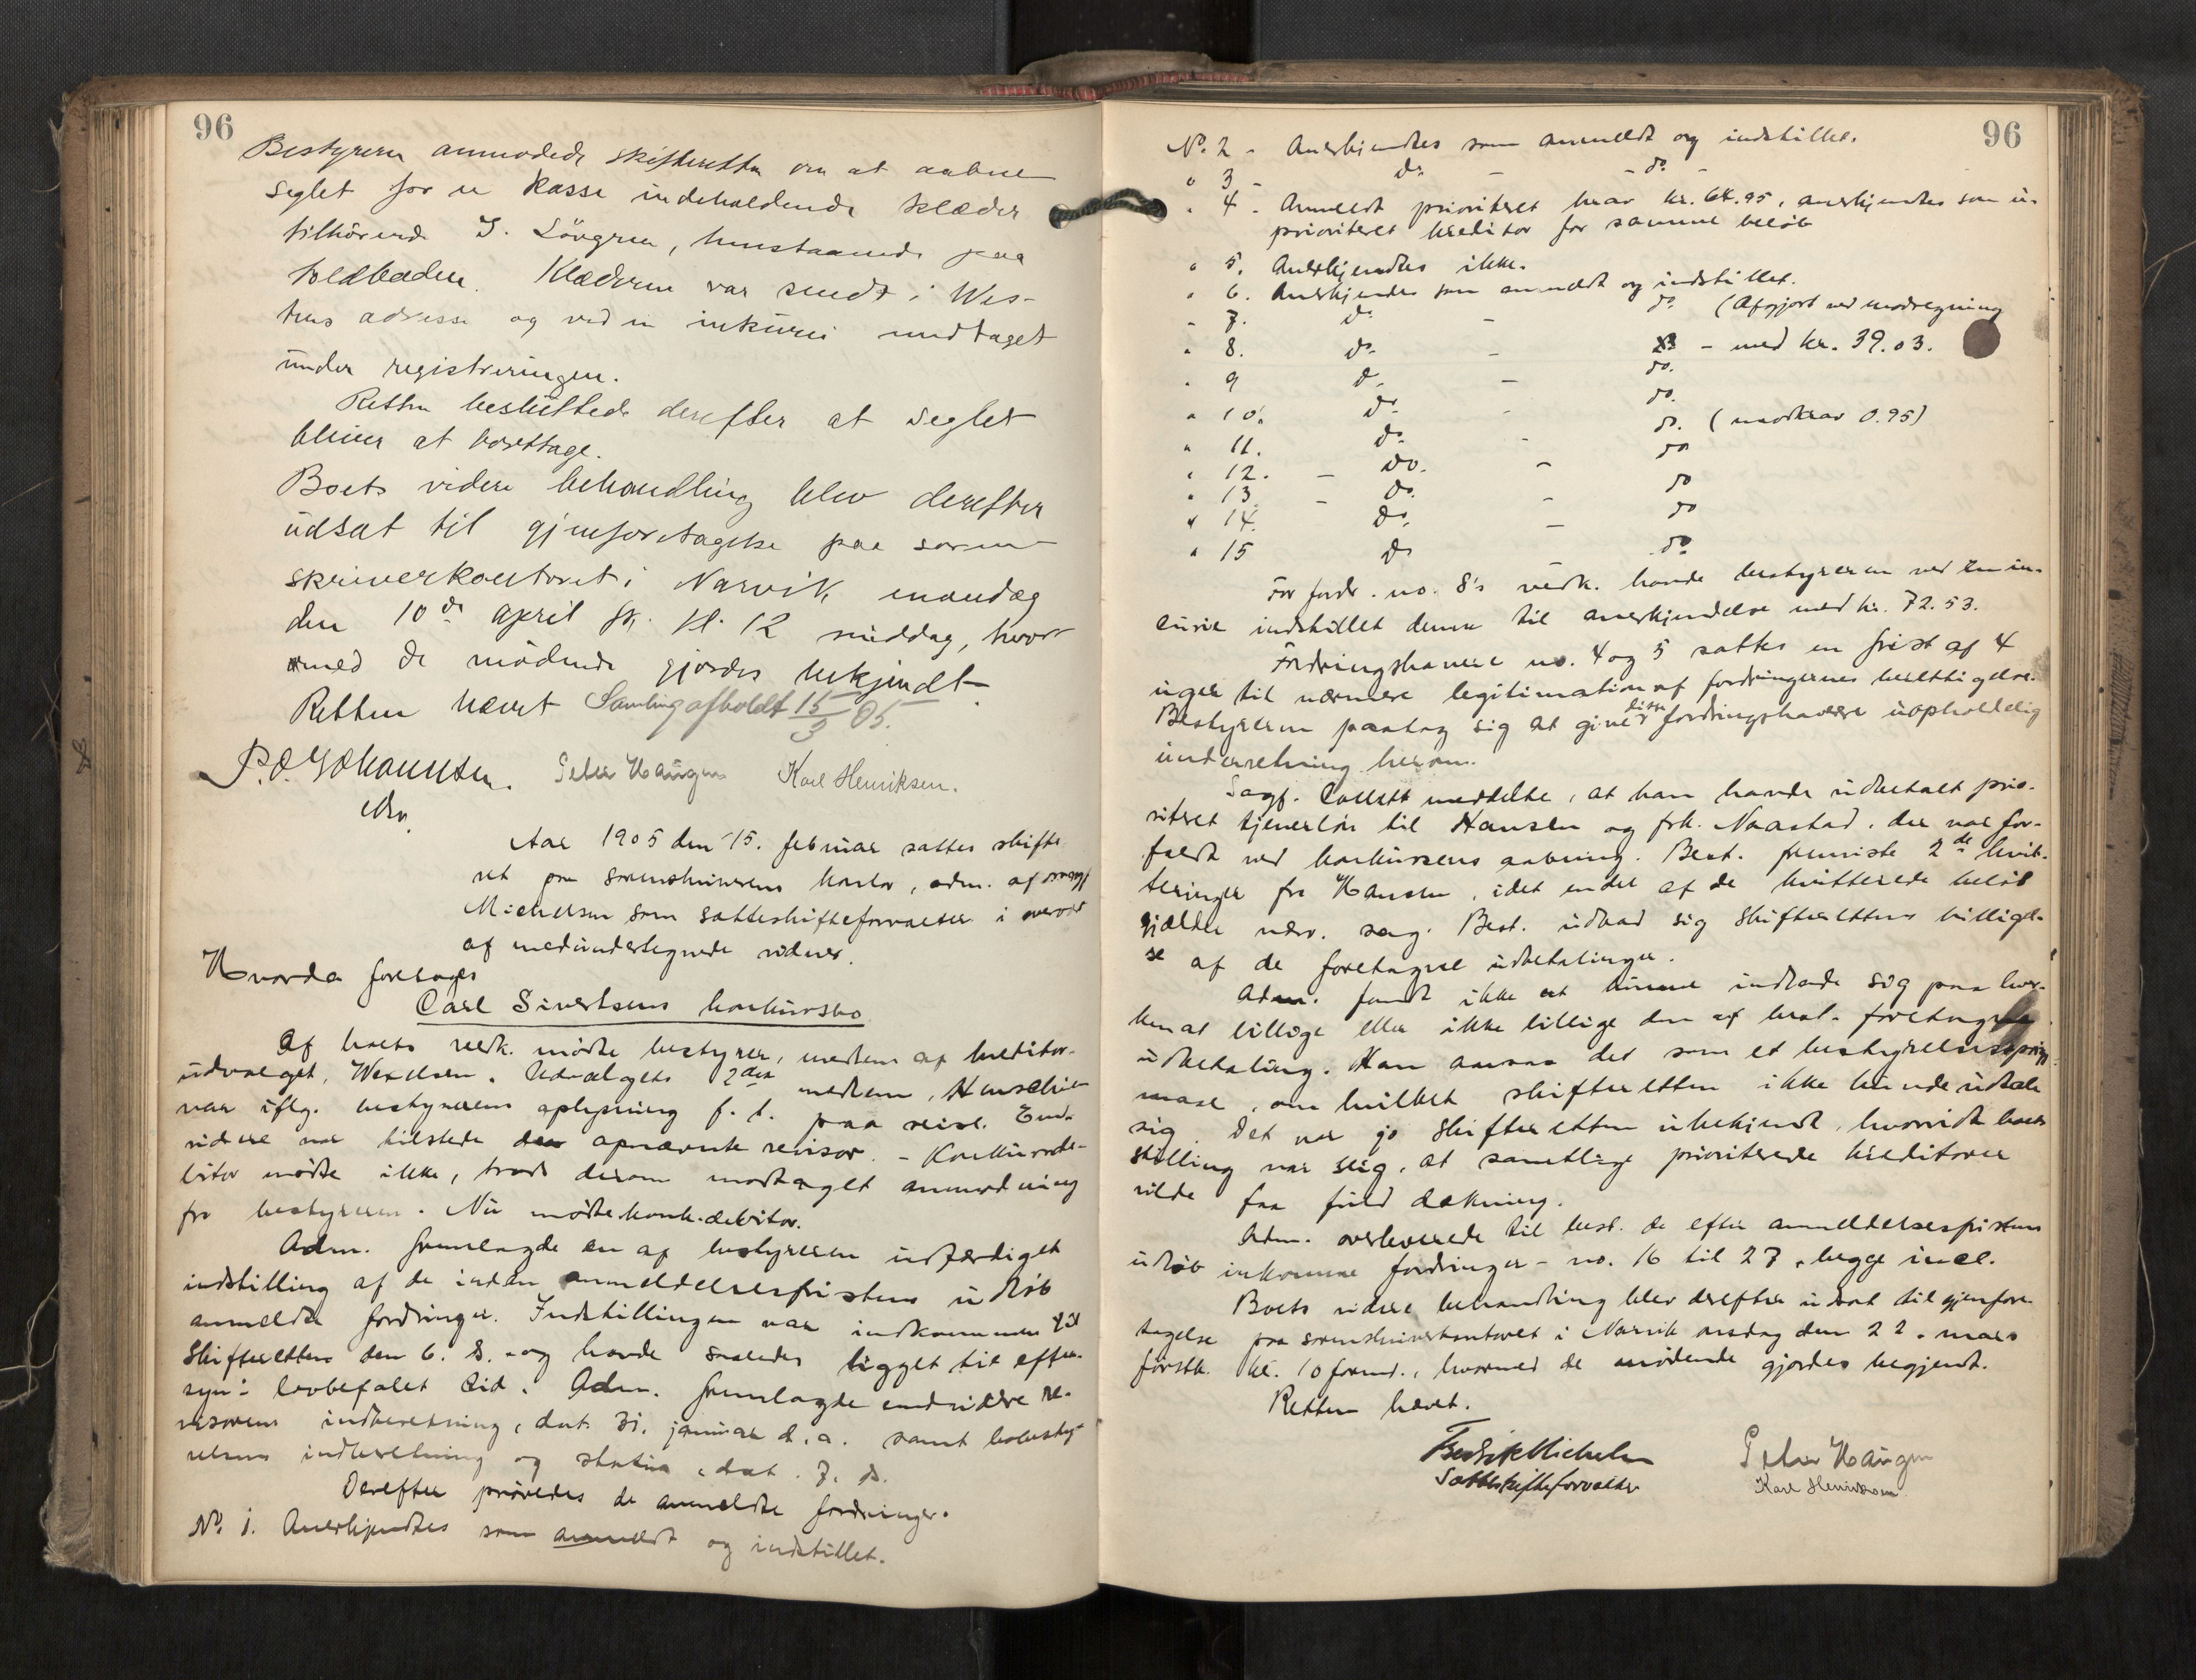 96
Bestyreren anmodede skifteretten om at aabne
seglet for en kasse indeholdende klæder
tilhörende J. Lövgren, henstaaende paa
toldboden. Klæderne var sendt i Wes-
tens adresse og ved en inkurie medtaget
under registreringen.
Retten besluttede derefter at seglet
bliver at borttage.
Boets videre behandling blev derefter
udsat til gjenforetagelse paa soren-
skriverkontoret i Narvik mandag
den 10de april fk. kl. 12 middag, hvor
med de mödende gjordes bekjendt.
Retten hævet Samling afholdt 15/3 05.
P.O. Johannsen. Peter Haugen Karl Henriksen.
Aar 1905 den 15. februar sattes skifte-
ret paa sorenskriverens kontor, adm. af
Michelsen som sætteskifteforvalter i overvær
af medundertegnede vidner.
Hvorda foretoges
Carl Sivertsens konkursbo
Af boets vedk. mödte bestyrer, medlem af kreditor-
udvalget, Wexelsen. Udvalgets 2det medlem, Henschien
var iflg. bestyrerens oplysning f. t. paa reise. End-
videre var tilstede den opnævnte revisor. - Konkursde-
bitor mödte ikke, trods derom modtaget anmodning
fra bestyreren. Nu mödte konk.debitor.
Adm. fremlagde en af bestyreren udfærdiget
indstilling af de inden anmeldelsesfristens udlöb
anmeldte fordringer. Indstillingen var indkommen til
skifteretten den 6. ds. og havde saaledes ligget til efter-
syn i lovbefalet tid. Adm. fremlagde endvidere re-
visorens indberetning, dat. 31. januar d.a. samt bobesty-
relsens indberetning og status, dat. 7. ds.
Derefter prövedes de anmeldte fordringer.
No. 1. Anerkjendtes som anmeldt og indstillet.
96
No. 2 - Anerkjendtes som anmeldt og indstillet.
" 3 - do - - do -
" 4 - Anmeldt prioriteret krav kr. 64.95, anerkjendtes som u-
prioriteret kreditor for samme belöb
" 5. Anerkjendtes ikke.
" 6. Anerkjendes som anmeldt og indstillet.
" 7. do - do (Afgjort ved modregning
" 8. do - - med kr. 39.03.
" 9 do - do.
" 10. do - do.
" 11. do - do. (modkrav 0.95)
" 12. - do. - do
" 13 - do. - do
" 14. do. - do
" 15 do do
For fordr. no. 8's vedk. havde bestyreren ved en in-
curie indstillet denne til anerkjendelse med kr. 72.53.
Fordringshaverne no. 4 og 5 sattes en frist af 4
uger til nærmere legitimation af fordringernes berettigelse.
Bestyreren paatog sig at give disse fordringshavere uopholdelig
underretning herom.
Sagf. Collett meddelte, at han havde udbetalt prio-
riteret tjenerlön til Hansen og frk. Naastad, der var for-
faldt ved konkursens aabning. Best. fremviste 2de kvit-
teringer fra Hansen, idet endel af de kvitterede belöb
gjældte nærv. sag. Best. udbad sig skifterettens billigel-
se af de foretagne udbetalinger.
Adm. fandt ikke at kunne indlade sig paa hver-
ken at billige eller ikke billige den af best. foretagne
udbetaling. Han ansaa det som et bestyrelsesspörgs-
maal, om hvilket skifteretten ikke kunde udtale
sig. Det var jo skifteretten ubekjendt, hvorvidt boets
stilling var slig, at samtlige prioriterede kreditorer
vilde faa fuld dækning.
Adm. overleverede til best. de efter anmeldelsesfristens
udlöb inkomne fordringer - no. 16 til 27, begge incl.
Boets videre behandling blev derefter udsat til gjenfore-
tagelse paa sorenskriverkontoret i Narvik onsdag den 22. mars
förstk. kl. 10 formd., hvormed de mödende gjordes begjendt.
Retten hævet.
Fredrik Michelsen
Sætteskifteforvalter
Peter Haugen
Karl Henriksen